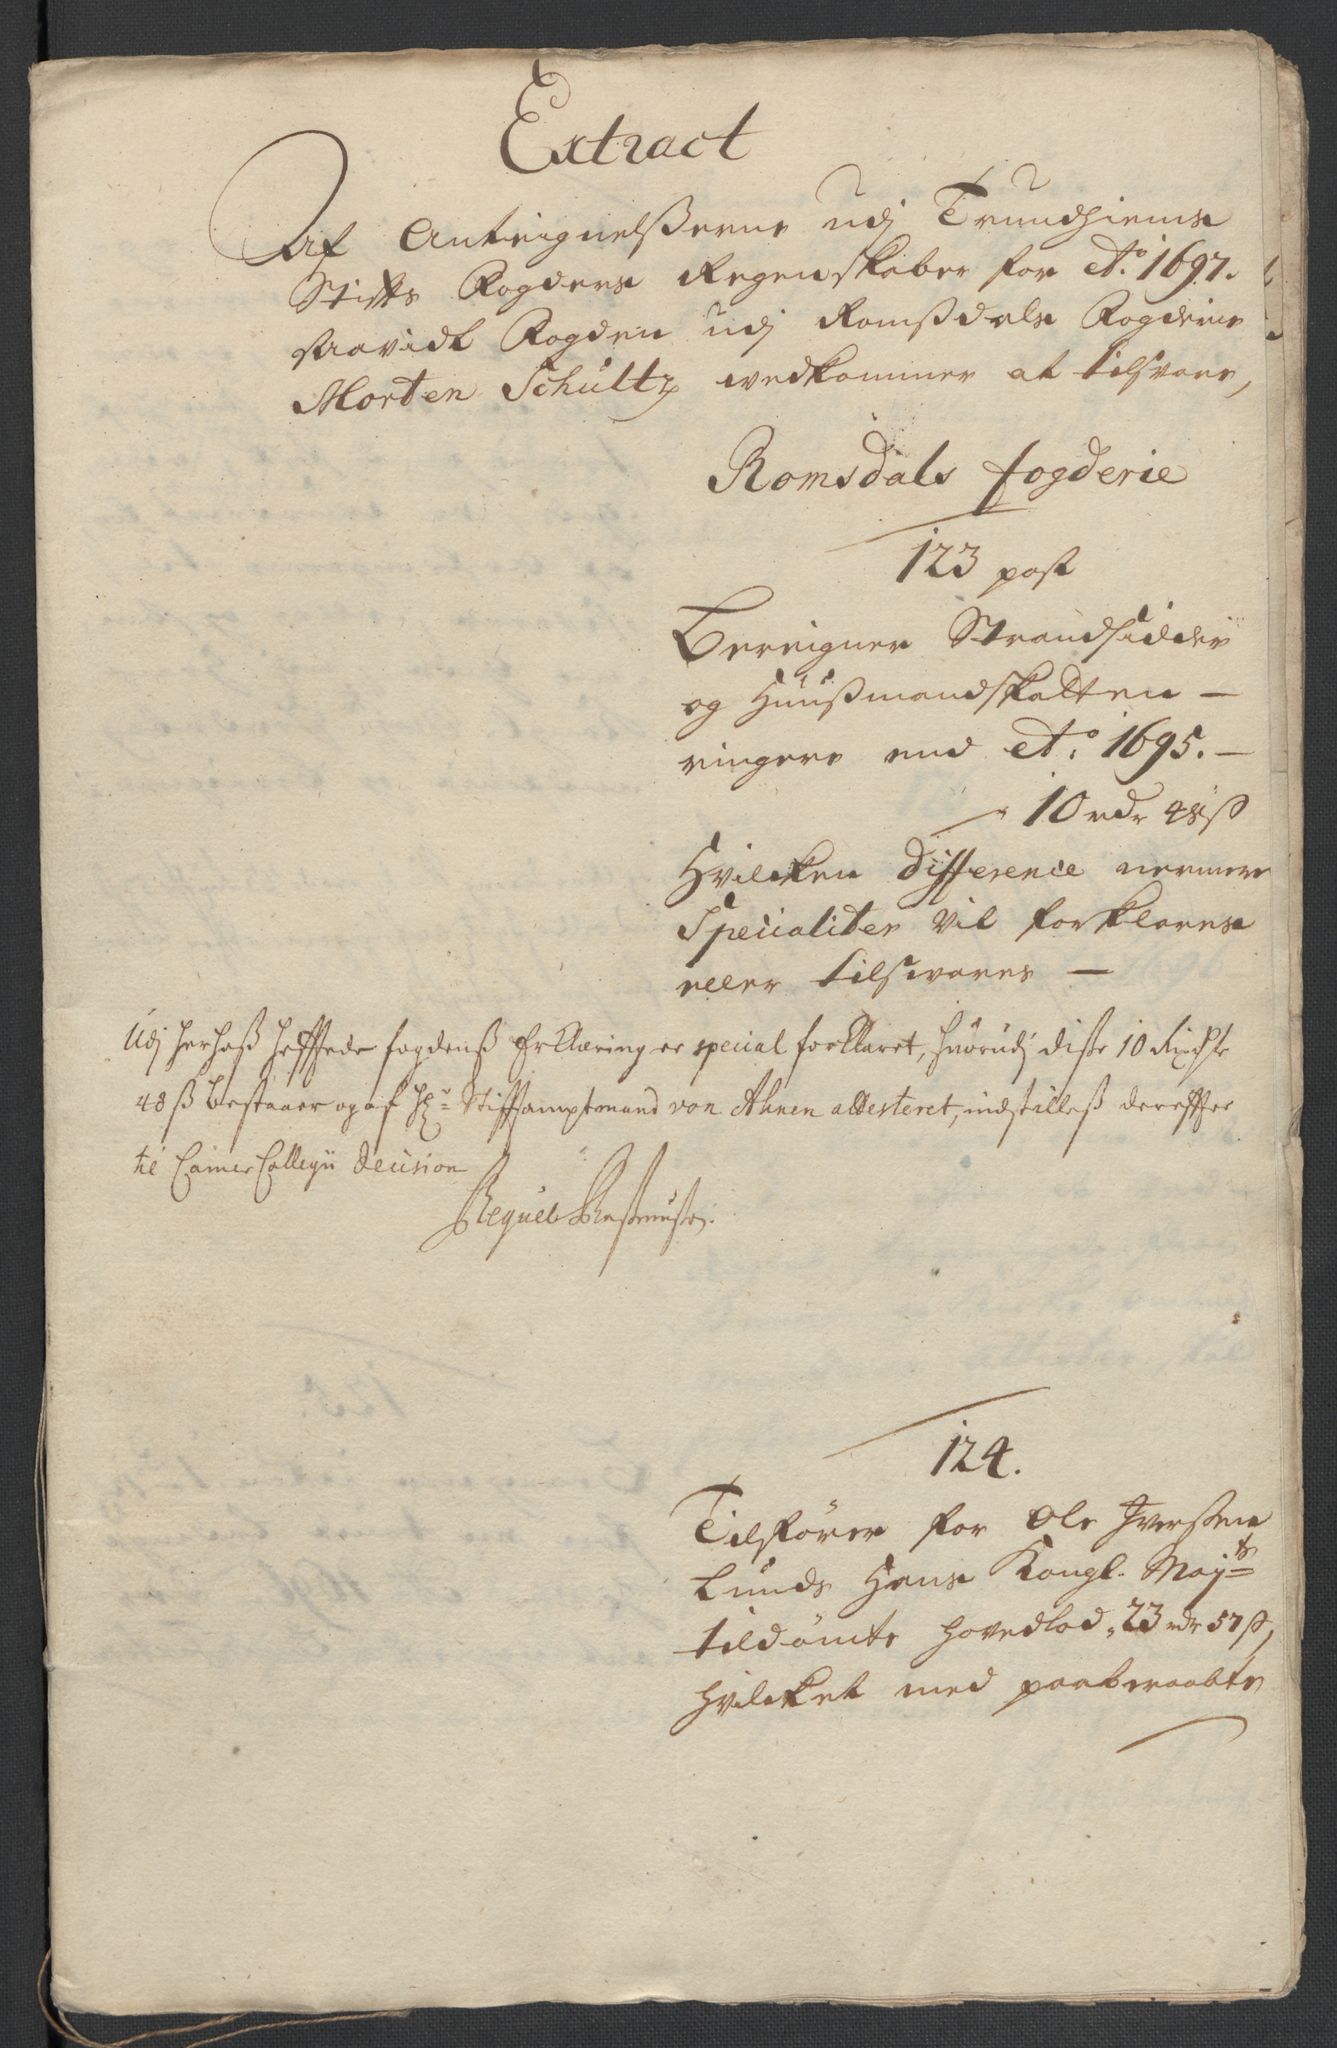 Extract
Af Anteignelßerne udj Trundhiems
Stifts Fogders Regenskaber for Ao. 1697.
saavidt Fogden udj Romßdals Fogderie
Morten Schultz vedkommer at tilsvare,
Romsdals fogderie
123 post
Bereigner Strandsidder
og Huußmandskatten —
ringere end Ao. 1695. —
10 rdr 48 ß
Hvilcken Difference nermere
Specialiter vil forklares
eller tilsvares —
Udj herhoß hefftede fogdenß Erklæring er special forklaret, huorudj disse 10 Rixdlr
48 ß bestaaer og af Hr. Stifftamptmand von Ahnen attesteret, indstilleß dereffter
til Camer Collegii Decision
124.
Tilfører for Ole Iverßen
Lunds Hans Kongl. Mayts
tildømte hovedlod, 23 rdr 57 ß,
hvilcket med paaberaabte